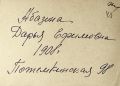 Абазина
Дарья Ефимовна
1908
Потемкинская 98